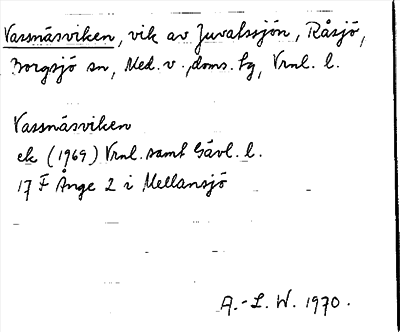 Vassnäsviken, vik av Juvatssjön, Råsjö,
Borgsjö sn, Med. v. doms. tg, Vrnl. l.
Vassnäsviken
ek (1969) Vrnl. samt Gävl. l.
17 F Ånge 2 i Mellansjö
A.-L. W. 1970.